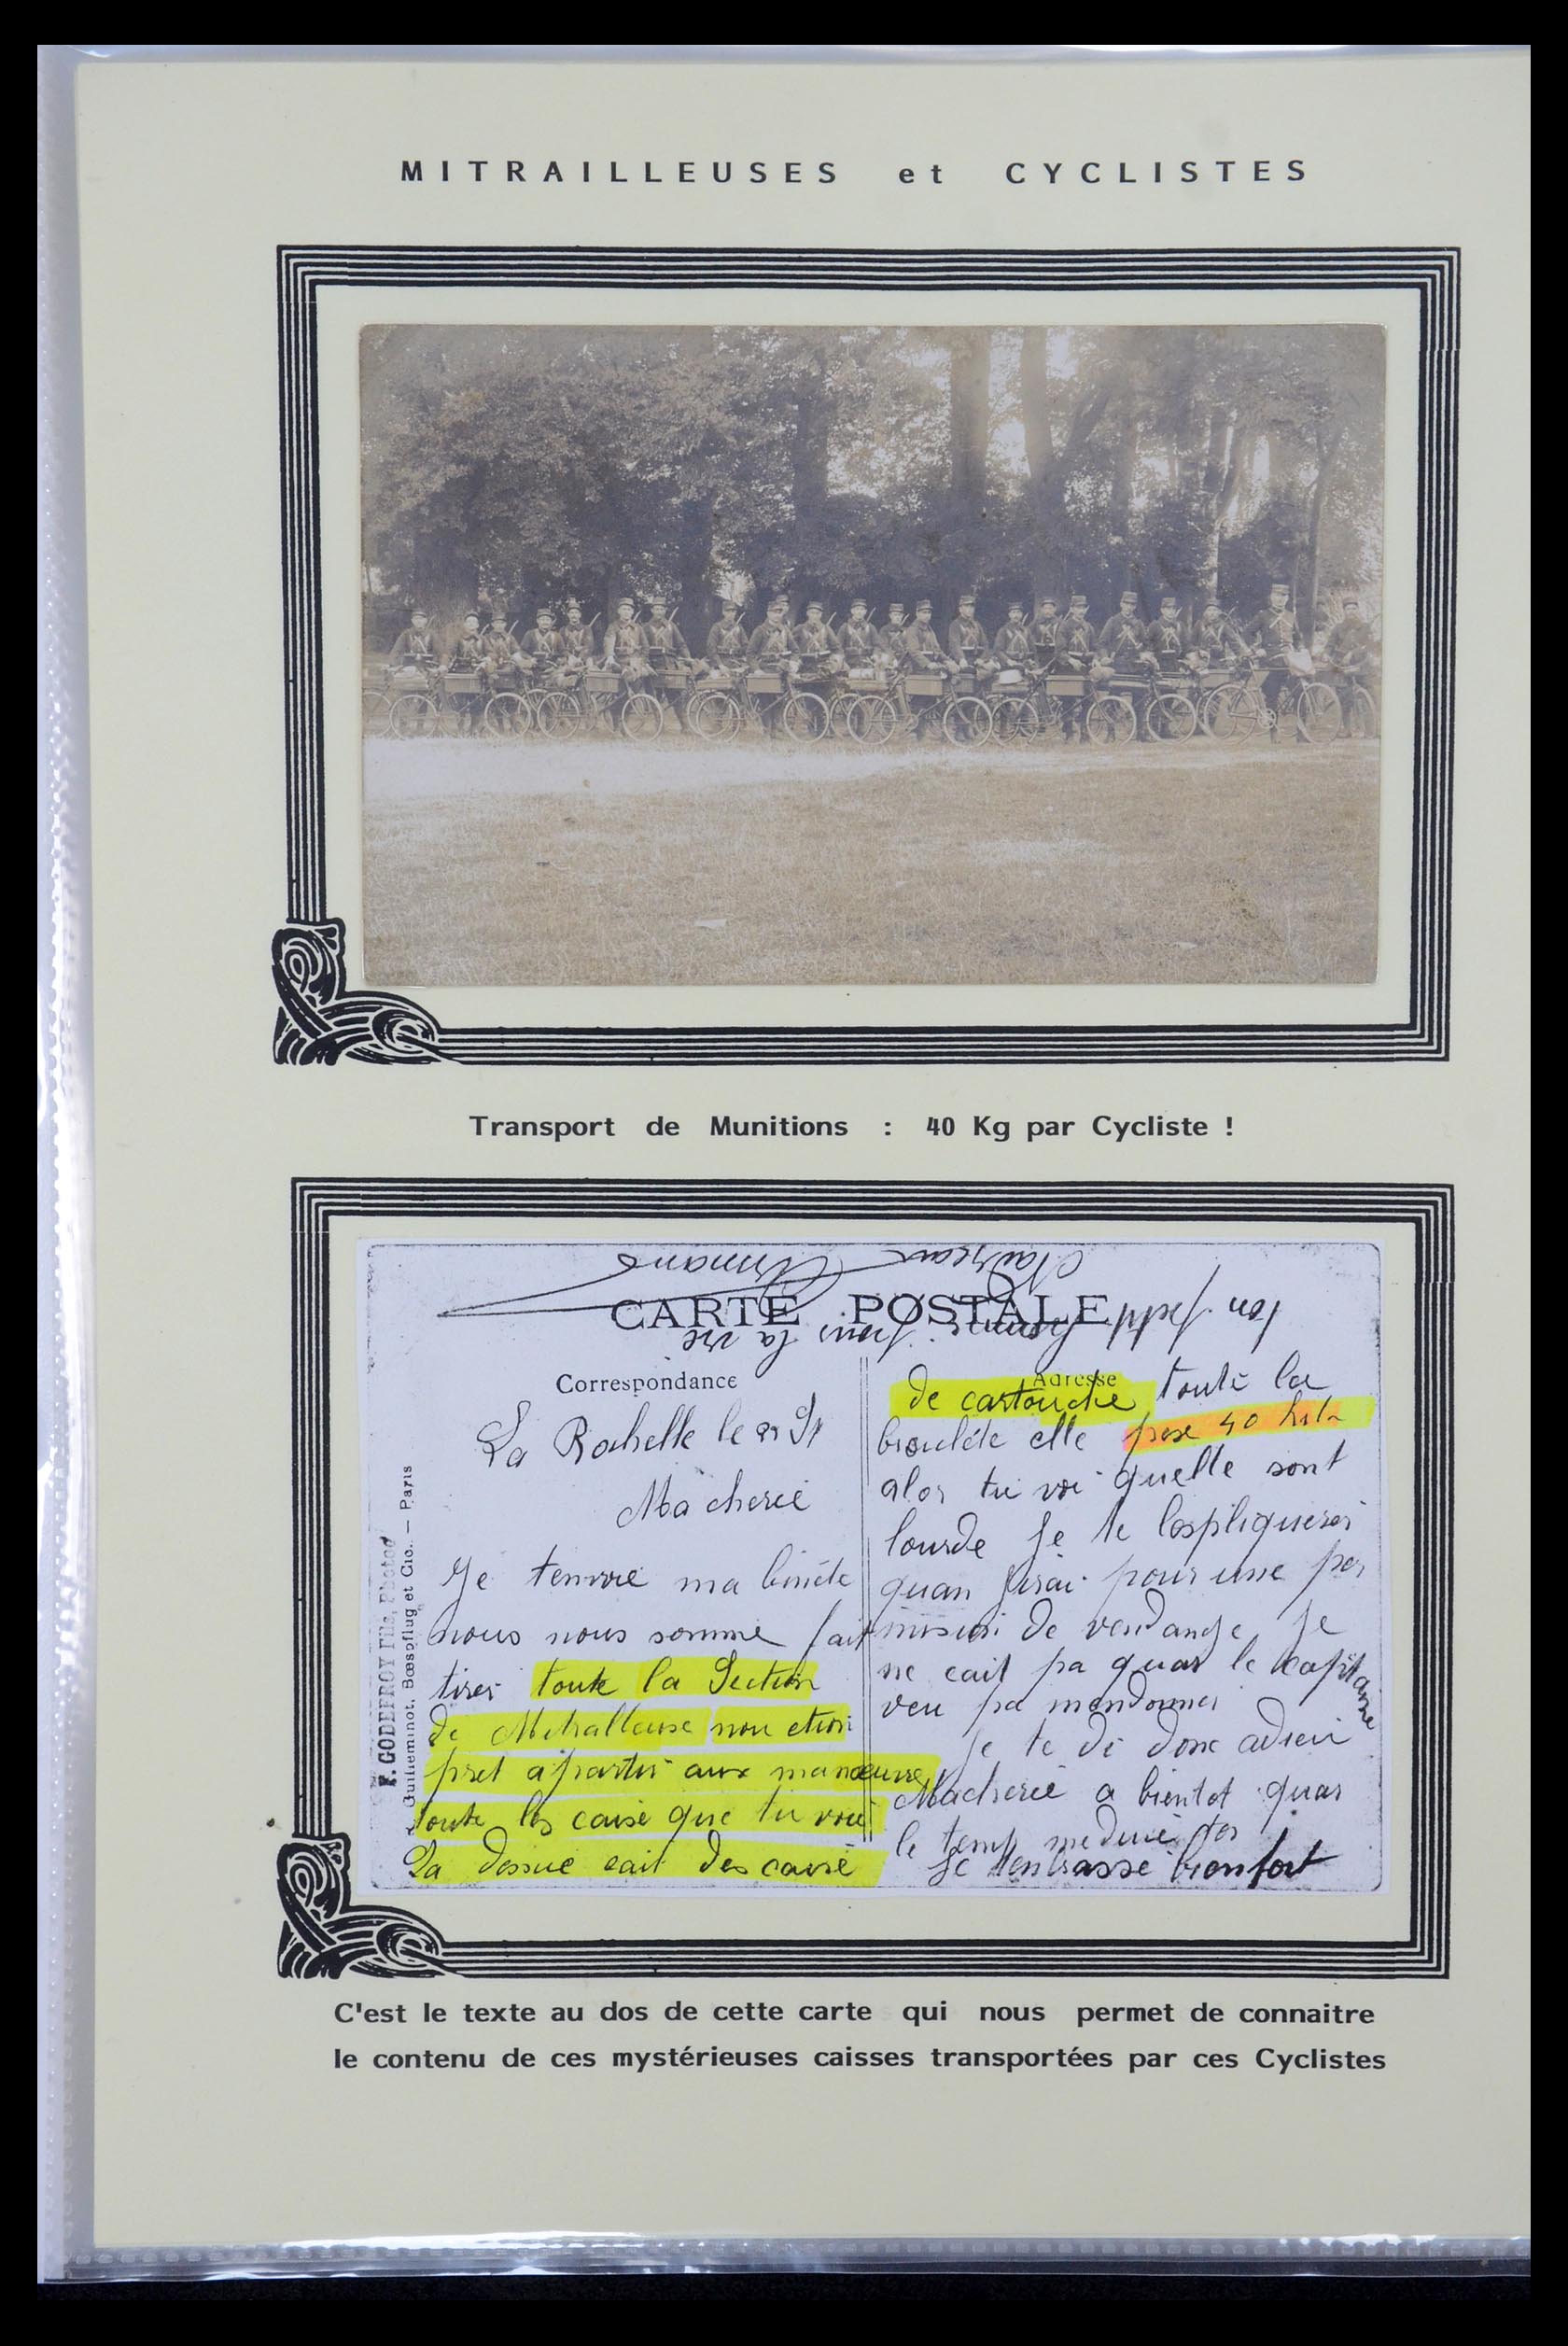 MITRAILLEUSES et CYCLISTES
Transport de Munitions : 40 Kg par Cycliste !
Armand
ton petit homme pour la vie
CARTE POSTALE
Correspondance
Adresse
La Rochelle le
Ma cherie
Je tenvoie ma binéte
nous nous somme fait
tirer toute la Section
de Mitralleuse nou etion
pret a partir aux manœuvre
toute les caise que tu voie
La dessue cait des caise
de cartouche toute la
brouléte elle pese 40 kilo
alor tu voi quelle sont
lourde Je te lespliquerai
quan Jirai pour une per
mision de vendange Je
ne cait pa quar le capitaine
veu pa mendonner
Je te di donc adieu
Macherie a bientot quar
le temp me dure
Je tembrasse bien fort
F. GODEFROY Fils, Photog
Guilleminot, Bœspflug et Cie. — Paris
C'est le texte au dos de cette carte qui nous permet de connaitre
le contenu de ces mystérieuses caisses transportées par ces Cyclistes